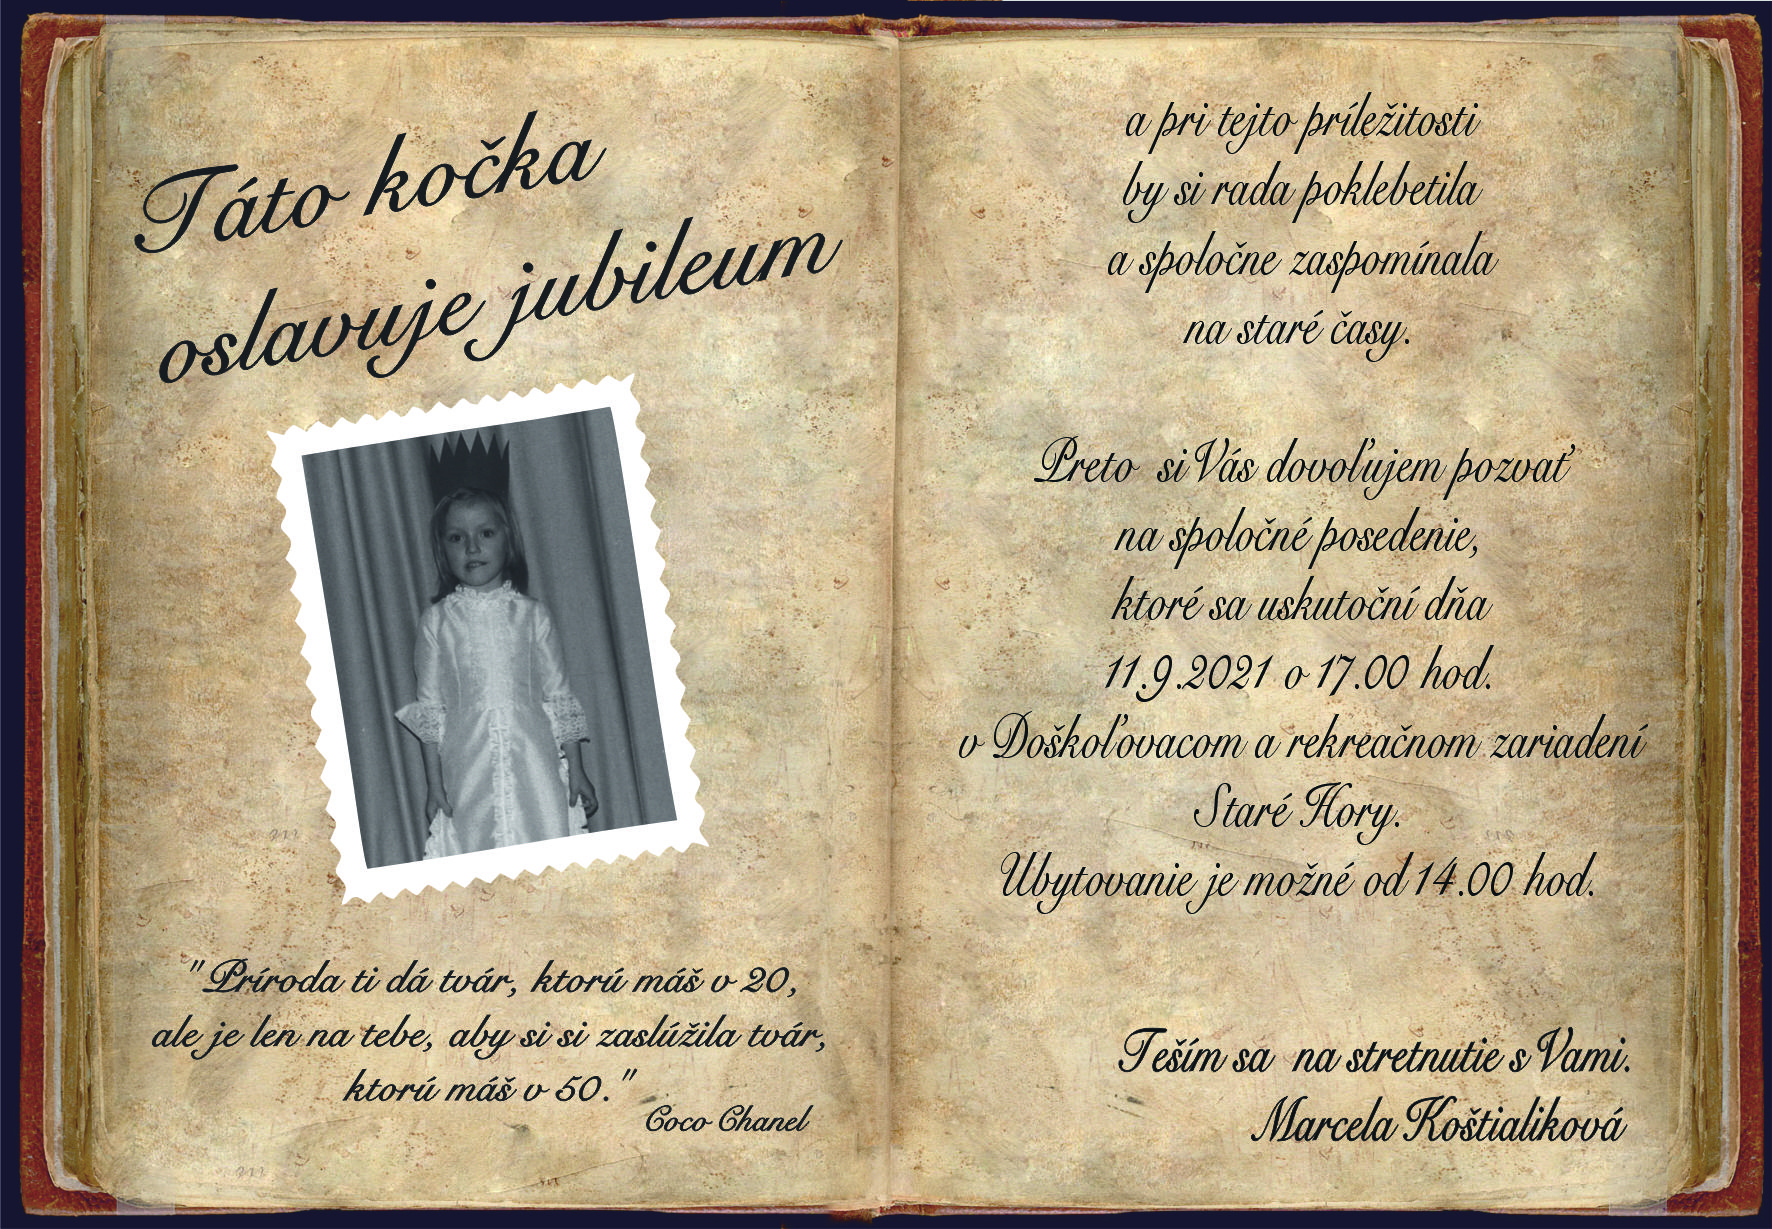 Táto kočka
oslavuje jubileum
"Príroda ti dá tvár, ktorú máš v 20,
ale je len na tebe, aby si si zaslúžila tvár,
ktorú máš v 50."
Coco Chanel
a pri tejto príležitosti
by si rada poklebetila
a spoločne zaspomínala
na staré časy.
Preto si Vás dovoľujem pozvať
na spoločné posedenie,
ktoré sa uskutoční dňa
11.9.2021 o 17.00 hod.
v Doškoľovacom a rekreačnom zariadení
Staré Hory.
Ubytovanie je možné od 14.00 hod.
Teším sa na stretnutie s Vami.
Marcela Koštialiková